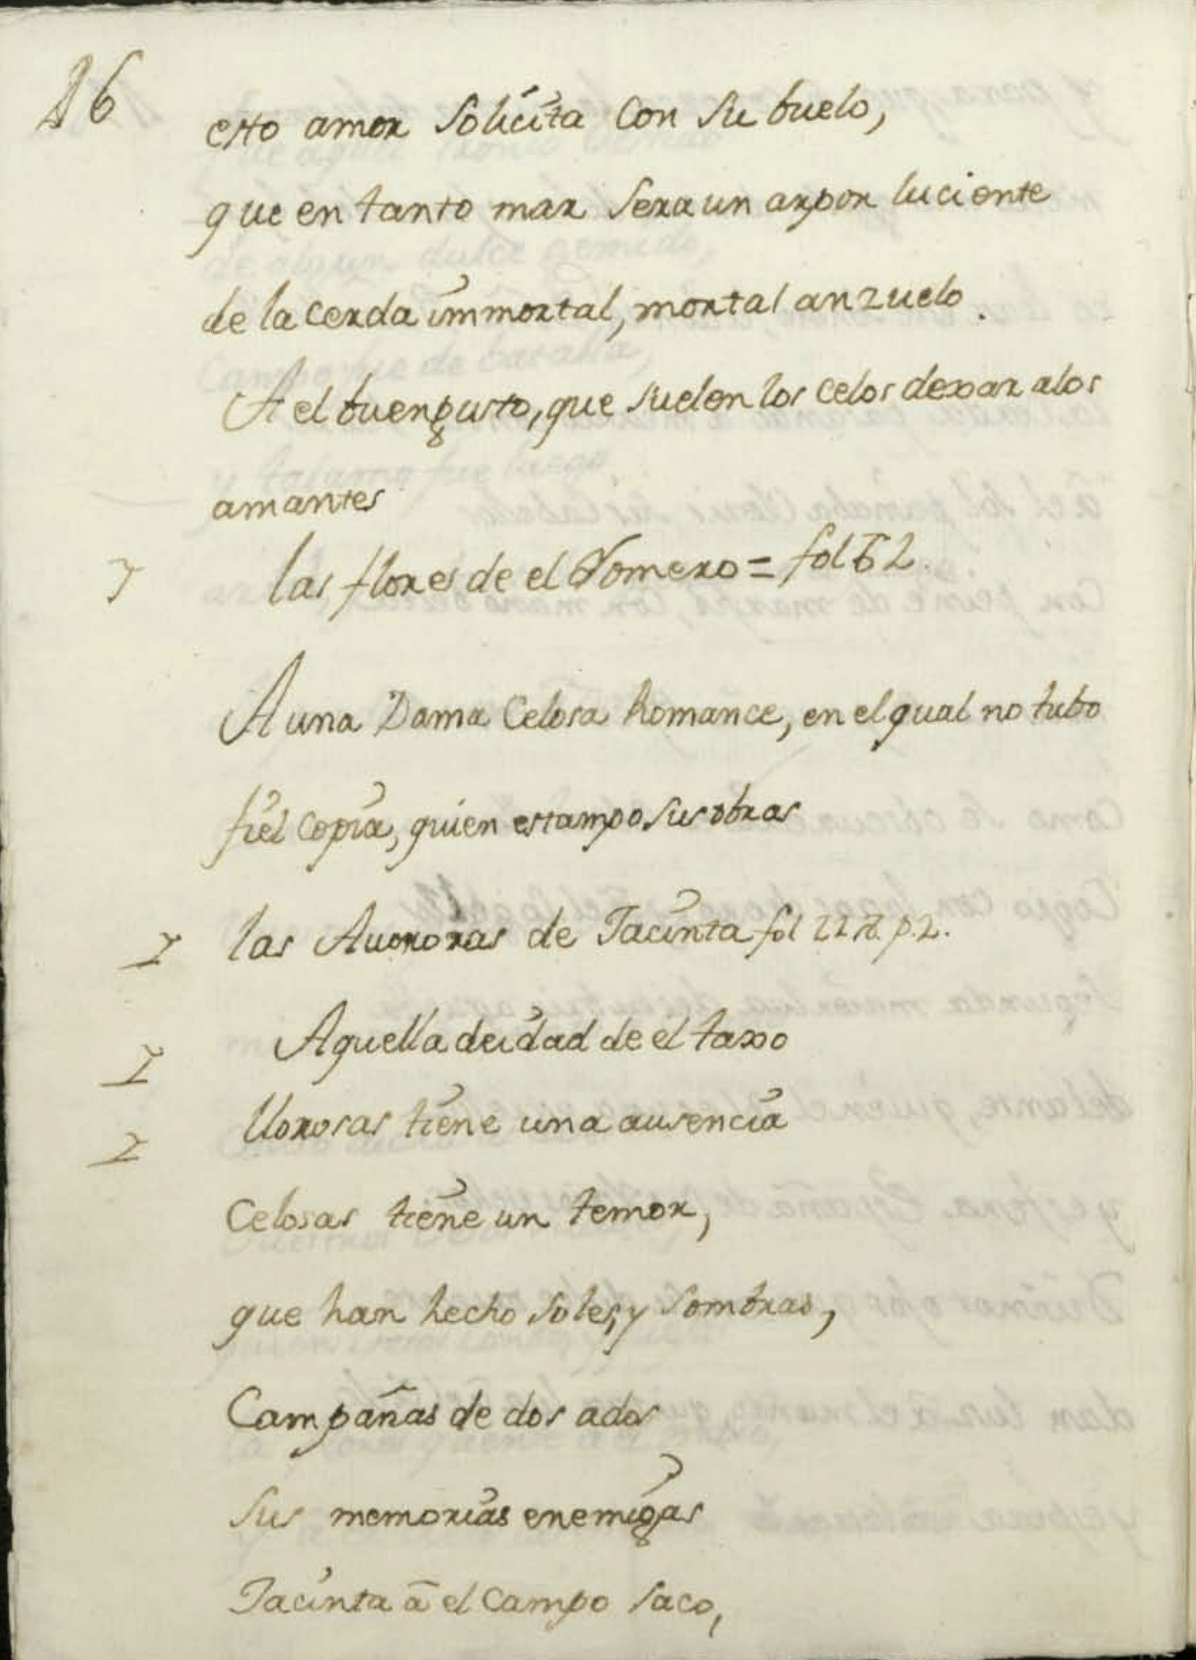 16
esto amor solicita con su buelo,
que en tanto mar sera un arpon luciente
de la cerda immortal, mortal anzuelo.
A el buen gusto, que suelen los celos dexar a los
amantes
las flores de el Romero = fol 62.
A una Dama Celosa Romance, en el qual no tubo
fiel copia, quien estampo sus obras
las Auroras de Jacinta fol p.2.
Aquella deidad de el taxo
llorosas tiene una ausencia
Celosas tiene un temor,
que han hecho soles, y sombras,
Campañas de dos ados
sus memorias enemigas
Jacinta a el campo saco,